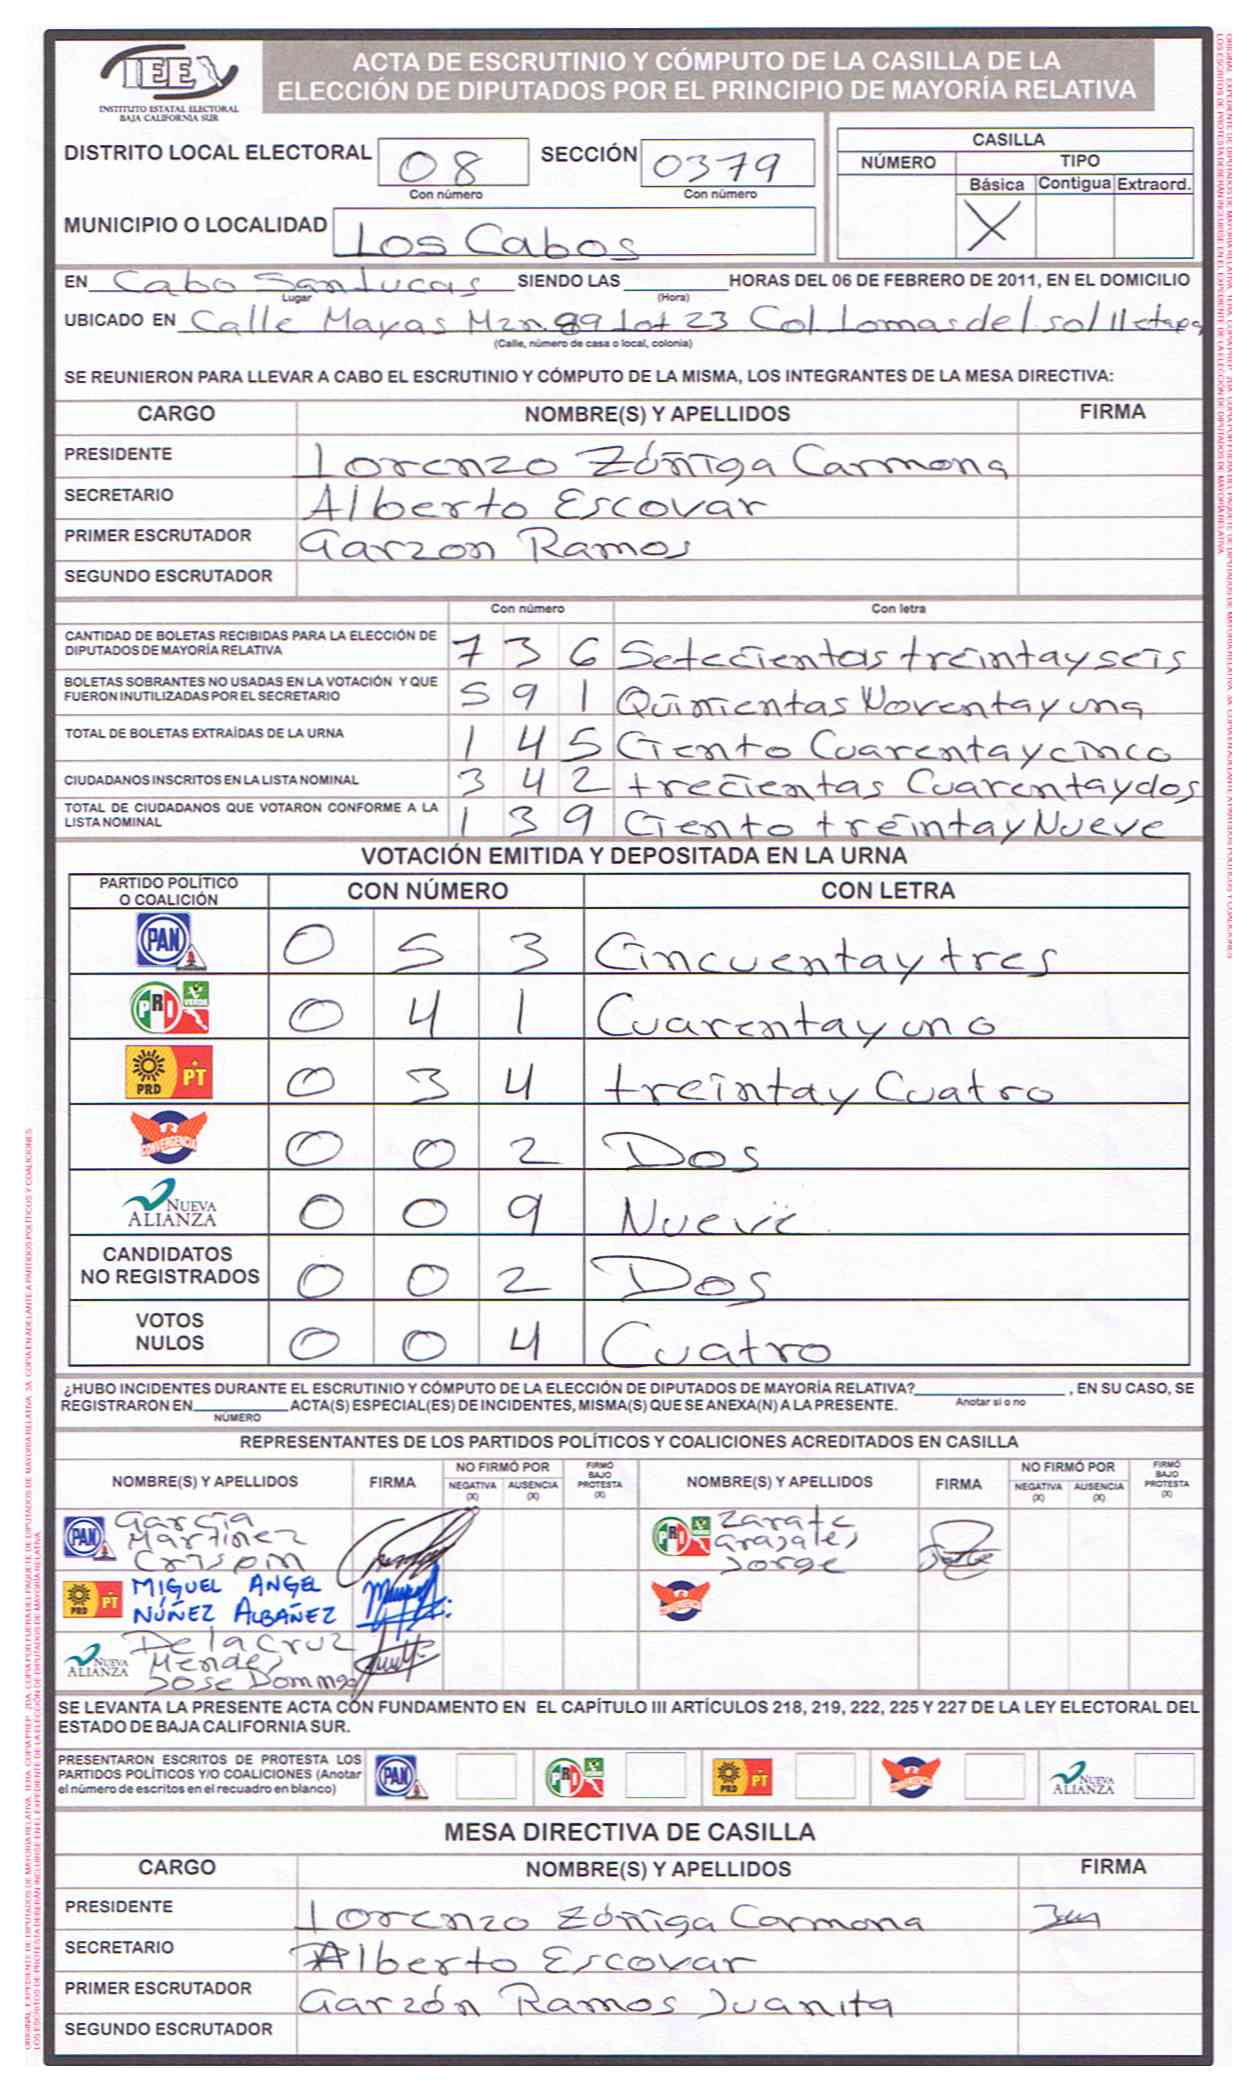 IEEX
INSTITUTO ESTATAL ELECTORAL
BAJA CALIFORNIA SUR
ACTA DE ESCRUTINIO Y CÓMPUTO DE LA CASILLA DE LA
ELECCIÓN DE DIPUTADOS POR EL PRINCIPIO DE MAYORÍA RELATIVA
DISTRITO LOCAL ELECTORAL 08 SECCIÓN 0379
Con número Con número
CASILLA
NÚMERO TIPO
Básica Contigua Extraord.
X
MUNICIPIO O LOCALIDAD Los Cabos
EN Cabo San Lucas SIENDO LAS HORAS DEL 06 DE FEBRERO DE 2011, EN EL DOMICILIO
Lugar (Hora)
UBICADO EN Calle Mayas Mzn. 89 Lot 23 Col Lomas del sol II etapa
(Calle, número de casa o local, colonia)
SE REUNIERON PARA LLEVAR A CABO EL ESCRUTINIO Y CÓMPUTO DE LA MISMA, LOS INTEGRANTES DE LA MESA DIRECTIVA:
CARGO NOMBRE(S) Y APELLIDOS FIRMA
PRESIDENTE Lorenzo Zúñiga Carmona
SECRETARIO Alberto Escovar
PRIMER ESCRUTADOR Garzon Ramos
SEGUNDO ESCRUTADOR
Con número Con letra
CANTIDAD DE BOLETAS RECIBIDAS PARA LA ELECCIÓN DE
DIPUTADOS DE MAYORÍA RELATIVA 7 3 6 Setecientas treinta y seis
BOLETAS SOBRANTES NO USADAS EN LA VOTACIÓN Y QUE
FUERON INUTILIZADAS POR EL SECRETARIO 5 9 1 Quinientas Noventa y una
TOTAL DE BOLETAS EXTRAÍDAS DE LA URNA 1 4 5 Ciento Cuarenta y cinco
CIUDADANOS INSCRITOS EN LA LISTA NOMINAL 3 4 2 trecientas Cuarenta y dos
TOTAL DE CIUDADANOS QUE VOTARON CONFORME A LA
LISTA NOMINAL 1 3 9 Ciento treinta y Nueve
VOTACIÓN EMITIDA Y DEPOSITADA EN LA URNA
PARTIDO POLÍTICO
O COALICIÓN CON NÚMERO CON LETRA
PAN 0 5 3 Cincuenta y tres
PRI VERDE 0 4 1 Cuarenta y uno
PRD PT 0 3 4 treinta y Cuatro
CONVERGENCIA 0 0 2 Dos
NUEVA ALIANZA 0 0 9 Nueve
CANDIDATOS
NO REGISTRADOS 0 0 2 Dos
VOTOS
NULOS 0 0 4 Cuatro
¿HUBO INCIDENTES DURANTE EL ESCRUTINIO Y CÓMPUTO DE LA ELECCIÓN DE DIPUTADOS DE MAYORÍA RELATIVA? , EN SU CASO, SE
Anotar sí o no
REGISTRARON EN ACTA(S) ESPECIAL(ES) DE INCIDENTES, MISMA(S) QUE SE ANEXA(N) A LA PRESENTE.
NÚMERO
REPRESENTANTES DE LOS PARTIDOS POLÍTICOS Y COALICIONES ACREDITADOS EN CASILLA
NOMBRE(S) Y APELLIDOS FIRMA NO FIRMÓ POR NEGATIVA (X) AUSENCIA (X) FIRMÓ BAJO PROTESTA (X) NOMBRE(S) Y APELLIDOS FIRMA NO FIRMÓ POR NEGATIVA (X) AUSENCIA (X) FIRMÓ BAJO PROTESTA (X)
PAN García
Martínez
PRI VERDE Zarate
Grajales
Jorge
PRD PT MIGUEL ANGEL
NÚÑEZ ALBAÑEZ
CONVERGENCIA
NUEVA ALIANZA De la Cruz
Mendez
Jose Domingo
SE LEVANTA LA PRESENTE ACTA CON FUNDAMENTO EN EL CAPÍTULO III ARTÍCULOS 218, 219, 222, 225 Y 227 DE LA LEY ELECTORAL DEL
ESTADO DE BAJA CALIFORNIA SUR.
PRESENTARON ESCRITOS DE PROTESTA LOS
PARTIDOS POLÍTICOS Y/O COALICIONES (Anotar
el número de escritos en el recuadro en blanco)
PAN PRI VERDE PRD PT CONVERGENCIA NUEVA ALIANZA
MESA DIRECTIVA DE CASILLA
CARGO NOMBRE(S) Y APELLIDOS FIRMA
PRESIDENTE Lorenzo Zúñiga Carmona
SECRETARIO Alberto Escovar
PRIMER ESCRUTADOR Garzón Ramos Juanita
SEGUNDO ESCRUTADOR